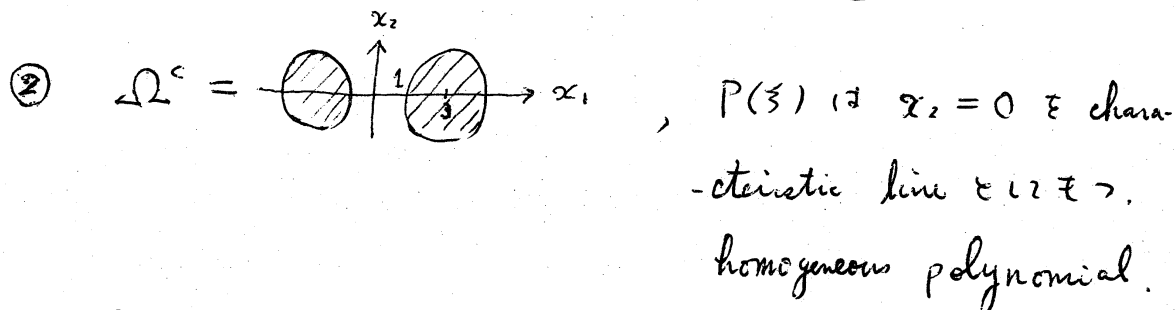 ② Ωᶜ = x₂ 1 3 x₁ , P(ξ) は x₂ = 0 を chara-
-cteristic line としてもつ.
homogeneous polynomial.